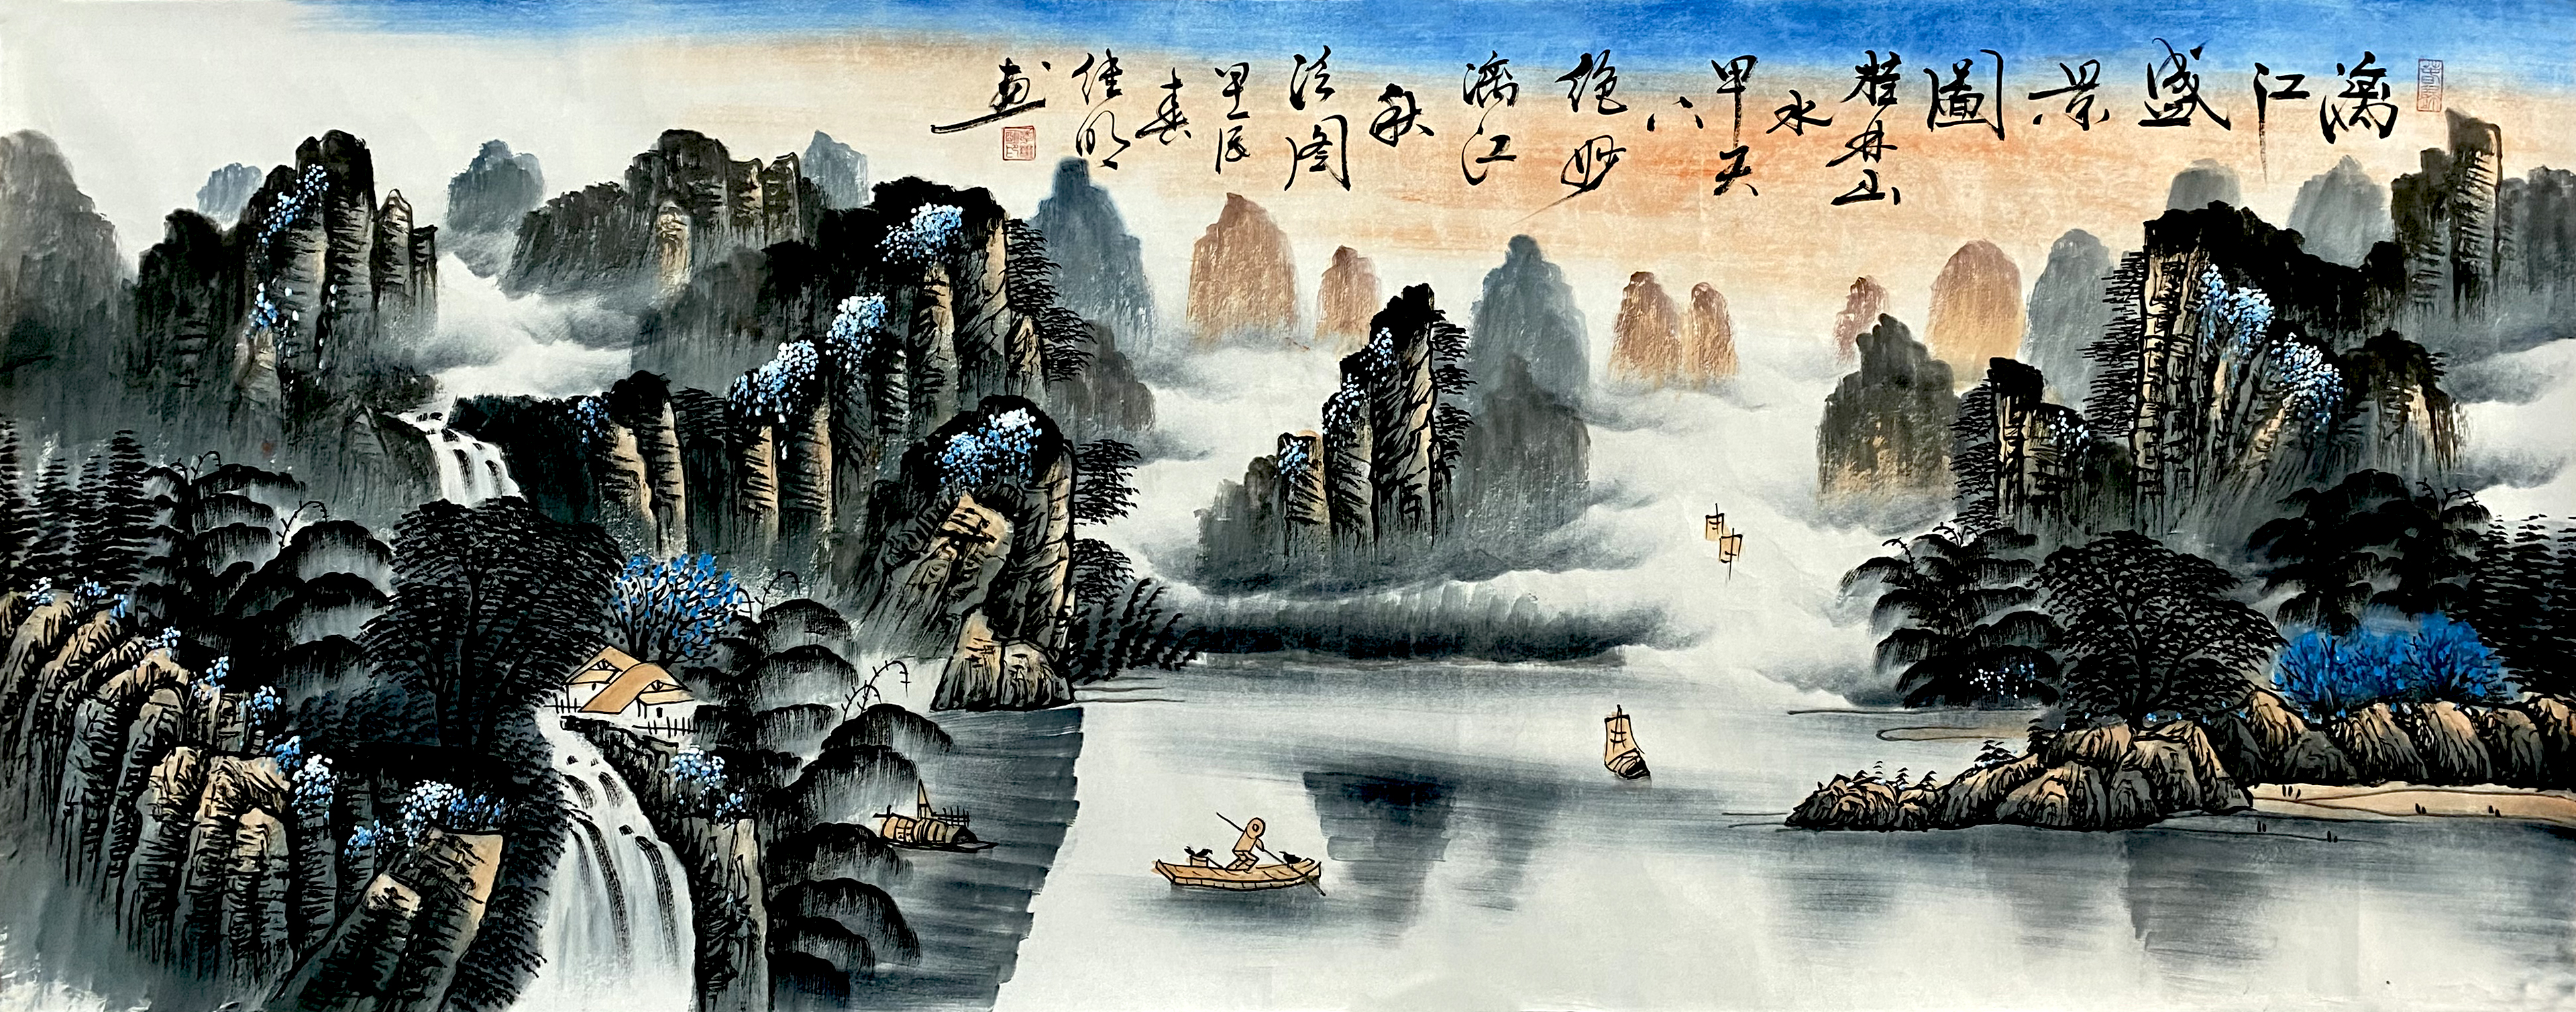 漓江盛景圖
桂林山
水
甲天
下
绝妙
漓江
秋
图
甲辰
春
佳明
画